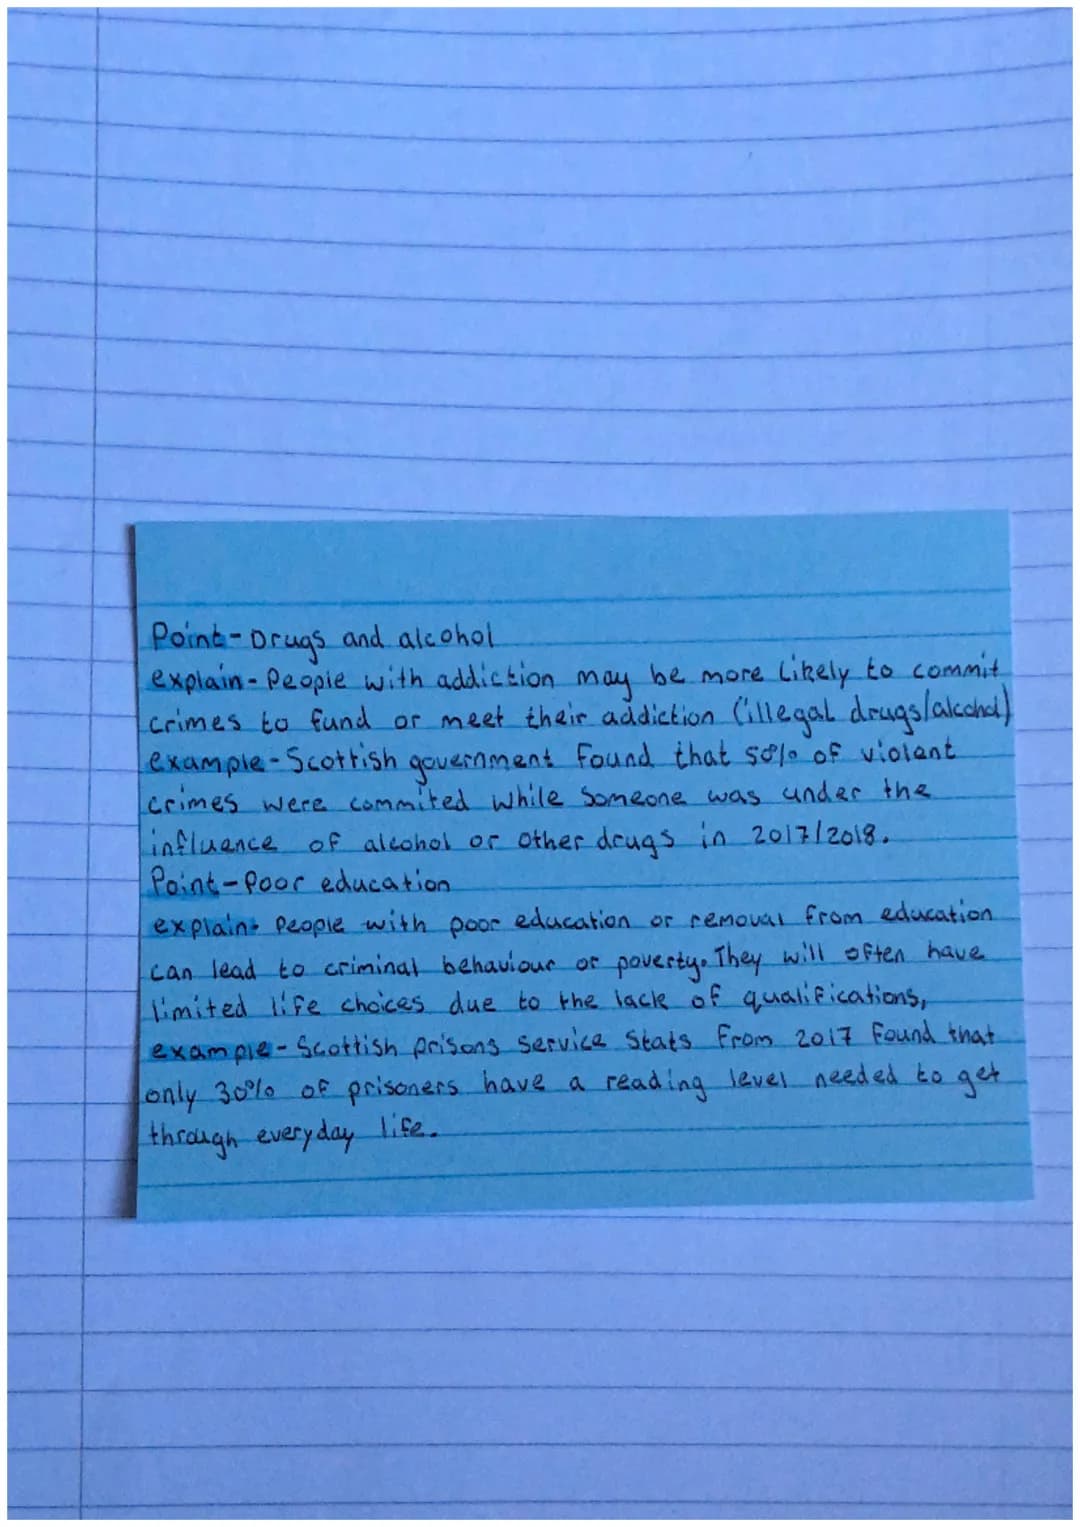 Point-Drugs and alcohol
explain-People with addiction may be more likely to commit
crimes to fund or meet their addiction (illegal drugs/alcohol)
example-Scottish government found that 50% of violent
crimes were commited while someone was under the
influence of alcohol or other drugs in 2017/2018.
Point-Poor education
explain- People with poor education or removal from education
can lead to criminal behaviour or poverty. They will often have
limited life choices due to the lack of qualifications,
example-Scottish prisons service stats from 2017 found that
only 30% of prisoners have a reading level needed to get
through everyday life.